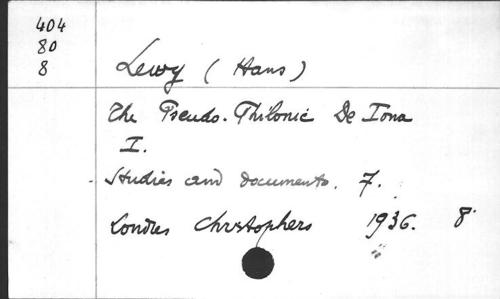 404
80
8
Lewy (Hans)
The Pseudo-Philonic De Iona
I.
Studies and documents. 7.
Londres Christophers 1936. 8°